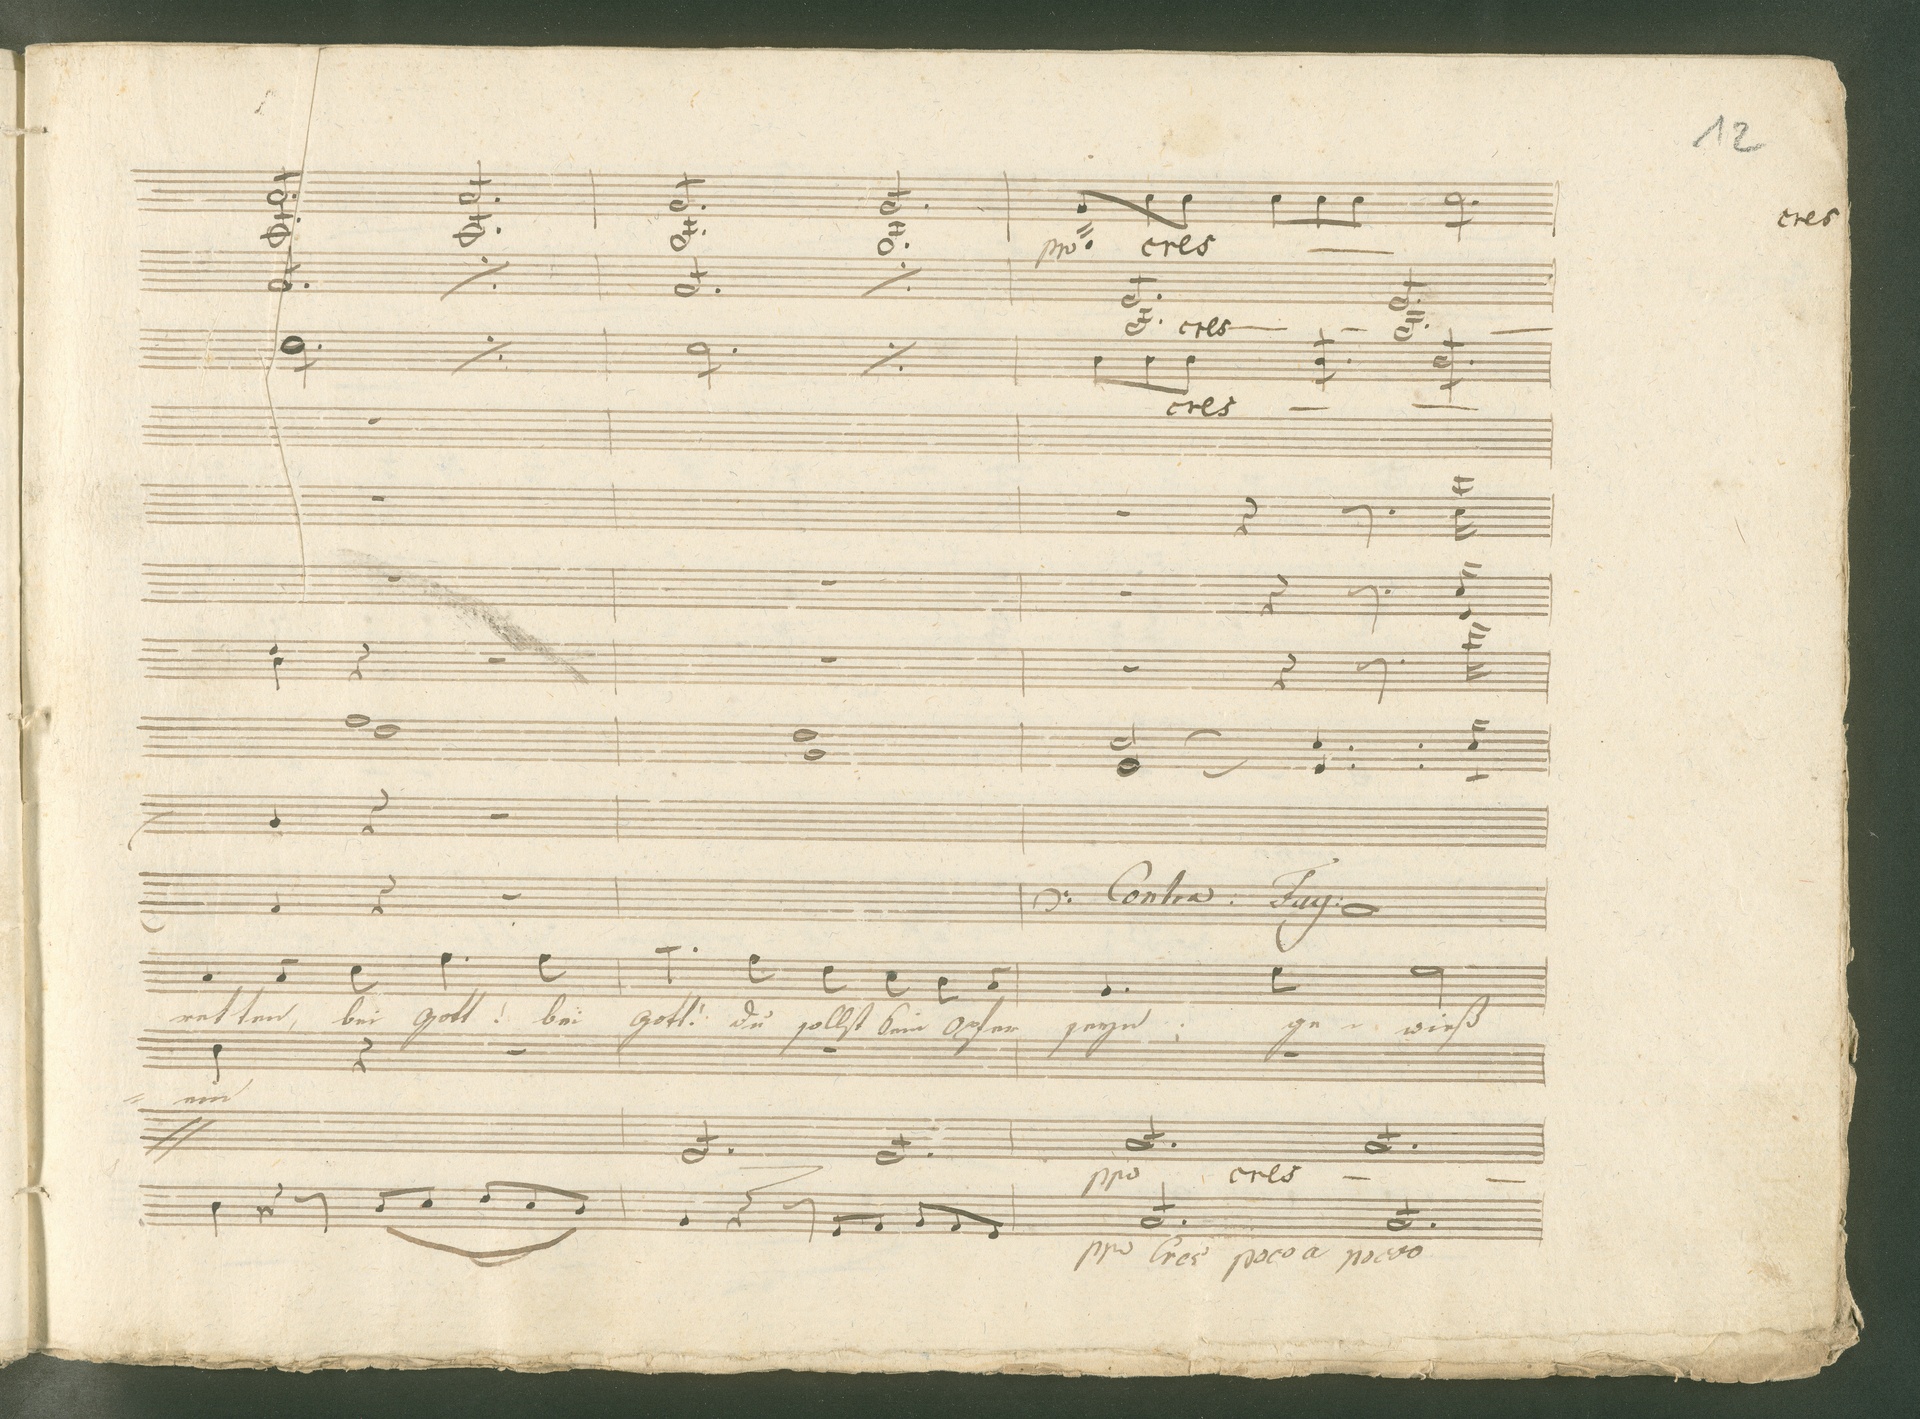 12
cres
ppo cres
cres
cres
Contra: Fag:
retten, bei Gott! bei Gott! du sollst kein Opfer seyn; ge - wieß
= ein
ppo cres
ppo Cres poco a pocoo